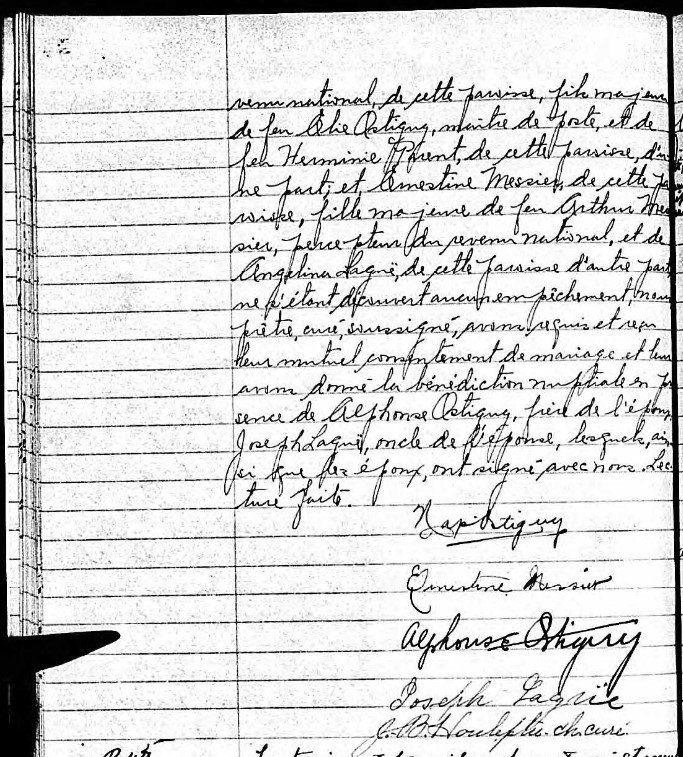 venu national, de cette paroisse, fils majeur
de feu Elie Ostiguy, maître de poste, et de
feu Herminie Parent, de cette paroisse, d'u
ne part; et Ernestine Messier, de cette pa
roisse, fille majeure de feu Arthur Mes
sier, percepteur du revenu national, et de
Angelina Laguë, de cette paroisse d'autre part
ne s'étant découvert aucun empêchement, nous
prêtre, curé, soussigné, avons requis et reçu
leur mutuel consentement de mariage et leur
avons donné la bénédiction nuptiale en pré
sence de Alphonse Ostiguy, frère de l'époux
Joseph Laguë, oncle de l'épouse, lesquels, ain
si que les époux, ont signé avec nous. Lec
ture faite.
Nap Ostiguy
Ernestine Messier
Alphonse Ostiguy
Joseph Laguë
J. B. ch. curé